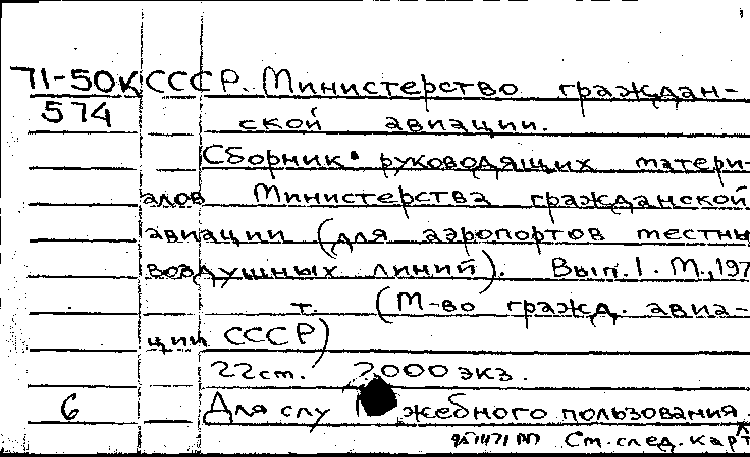 71-50К СССР. Министерство граждан-
574 ской авиации.
Сборник руководящих матери-
алов Министерства гражданской
авиации (для аэропортов местны
воздушных линий). Вып. 1. М., 197
т. (М-во гражд. авиа-
ции СССР)
22 ст. 2000 экз.
6 Для служебного пользования
См. след. карт